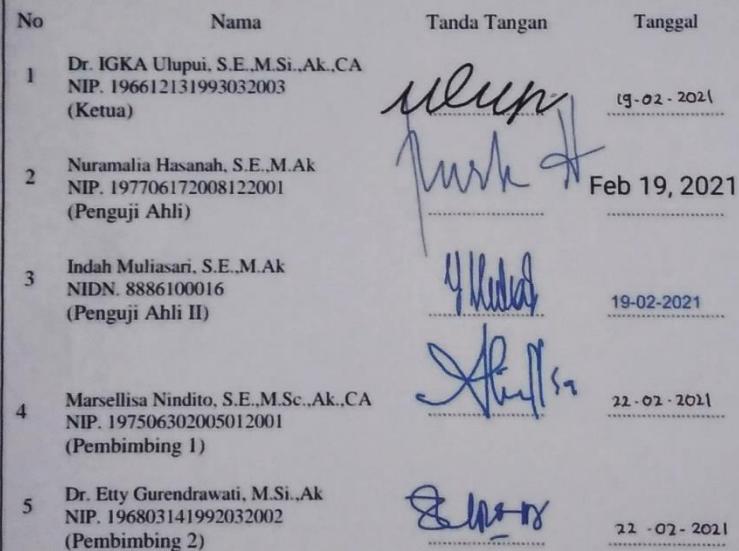 No Nama Tanda Tangan Tanggal
1 Dr. IGKA Ulupui, S.E.,M.Si.,Ak.,CA
NIP. 196612131993032003
(Ketua)
19-02-2021
2 Nuramalia Hasanah, S.E.,M.Ak
NIP. 197706172008122001
(Penguji Ahli)
Feb 19, 2021
3 Indah Muliasari, S.E.,M.Ak
NIDN. 8886100016
(Penguji Ahli II)
19-02-2021
4 Marsellisa Nindito, S.E.,M.Sc.,Ak.,CA
NIP. 197506302005012001
(Pembimbing 1)
22-02-2021
5 Dr. Etty Gurendrawati, M.Si.,Ak
NIP. 196803141992032002
(Pembimbing 2)
22-02-2021